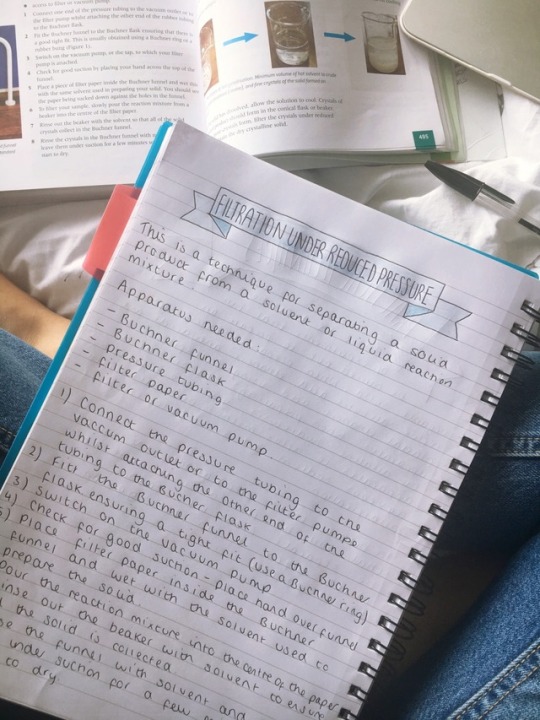 1 Connect one end of the pressure tubing to the vacuum outlet or to
the filter pump whilst attaching the other end of the rubber tubing
to the Buchner flask.
2 Fit the Buchner funnel to the Buchner flask ensuring that there is
a good tight fit. This is usually obtained using a Buchner ring or a
rubber bung (figure 1).
3 Switch on the vacuum pump, or the tap, to which your filter
pump is attached.
4 Check for good suction by placing your hand across the top of the
funnel.
5 Place a piece of filter paper inside the Buchner funnel and wet this
with the same solvent used in preparing your solid. You should see
the paper being sucked down against the holes in the funnel.
6 To filter your sample, slowly pour the reaction mixture from a
beaker into the centre of the filter paper.
7 Rinse out the beaker with the solvent so that all of the solid
crystals collect in the Buchner funnel.
8 Rinse the crystals in the Buchner funnel with
leave them under suction for a few minutes
start to dry.
Minimum volume of hot solvent
dissolved, allow the solution to cool. Crystals of
form in the conical flask or beaker.
form, filter the crystals under reduced
the dry crystalline solid.
495
FILTRATION UNDER REDUCED PRESSURE
This is a technique for separating a solid
product from a solvent or liquid reaction
mixture.
Apparatus needed:
- Buchner funnel
- Buchner flask
- pressure tubing
- filter paper
- filter or vacuum pump.
1) Connect the pressure tubing to the
vaccum outlet or to the filter pump
whilst attaching the other end of the
tubing to the Bucher flask.
2) Fit the Buchner funnel to the Buchner
flask ensuring a tight fit (use a Buchner ring)
3) Switch on the vacuum pump
4) Check for good suction - place hand over funnel
5) Place filter paper inside the Buchner
funnel and wet with the solvent used to
prepare the solid.
pour the reaction mixture into the centre of the paper
out the beaker with solvent to ensure
the solid is collected.
the funnel with solvent and
under suction for a few
to dry